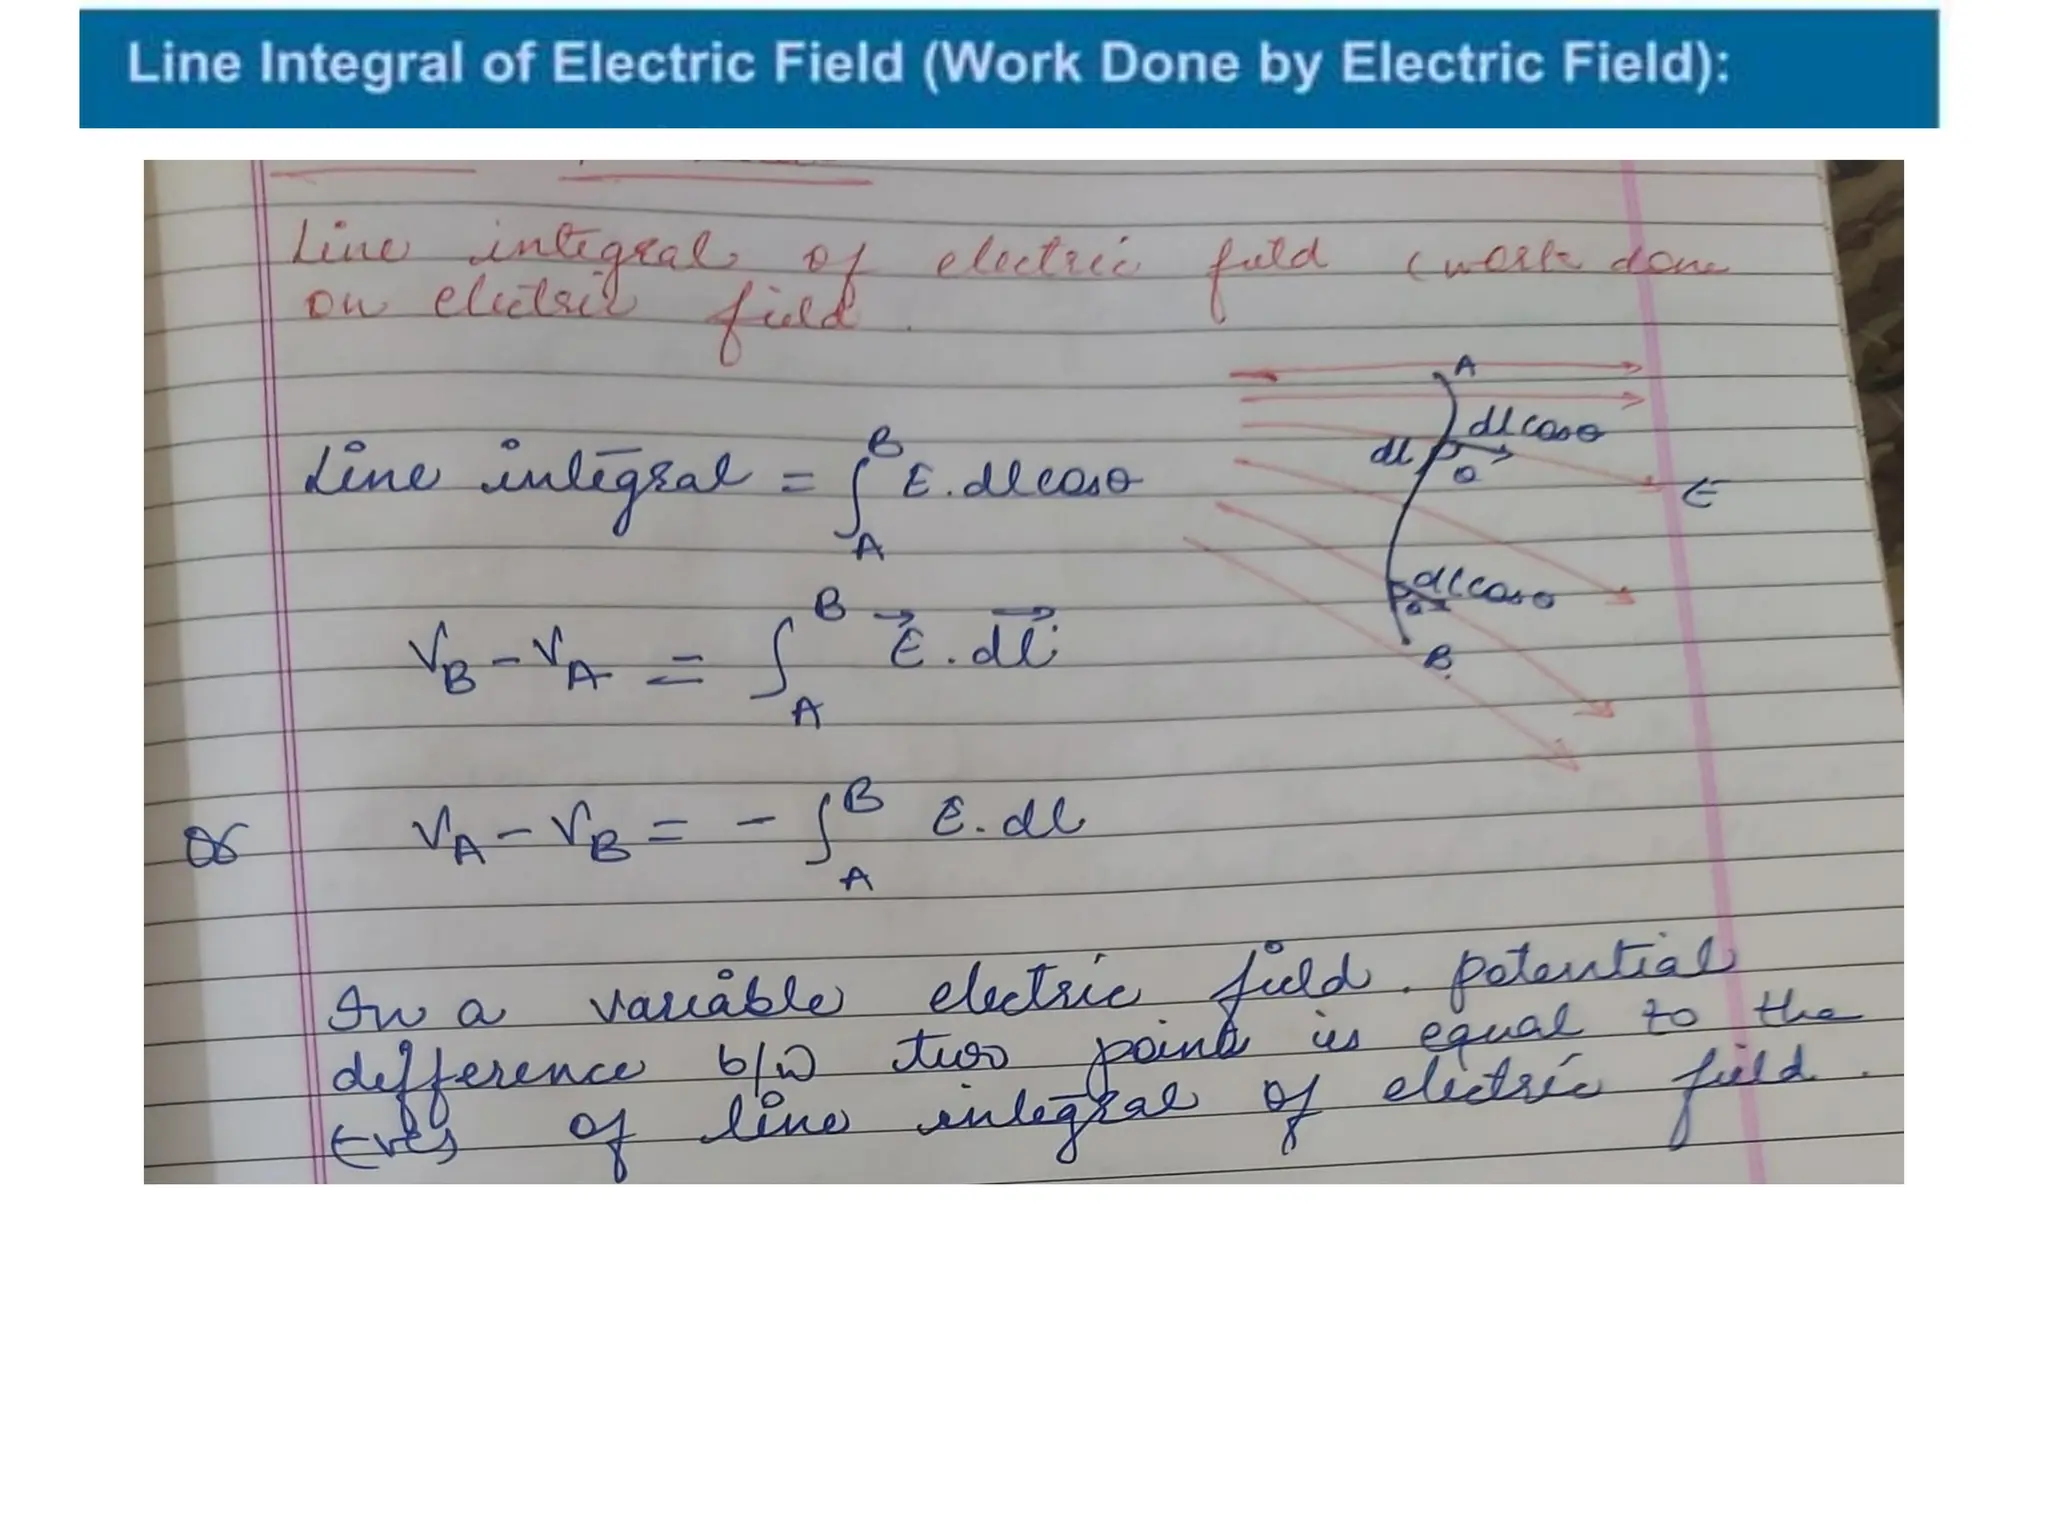 Line Integral of Electric Field (Work Done by Electric Field):
Line integral of electric field (work done
on electric field.
A
dl cosθ
dl
θ
E
Line integral = ∫_A^B E.dl cosθ
dl cosθ
θ
B
V_B - V_A = ∫_A^B E⃗.dl⃗
or V_A - V_B = - ∫_A^B E.dl
In a variable electric field. potential
difference b/w two points is equal to the
of line integral of electric field.